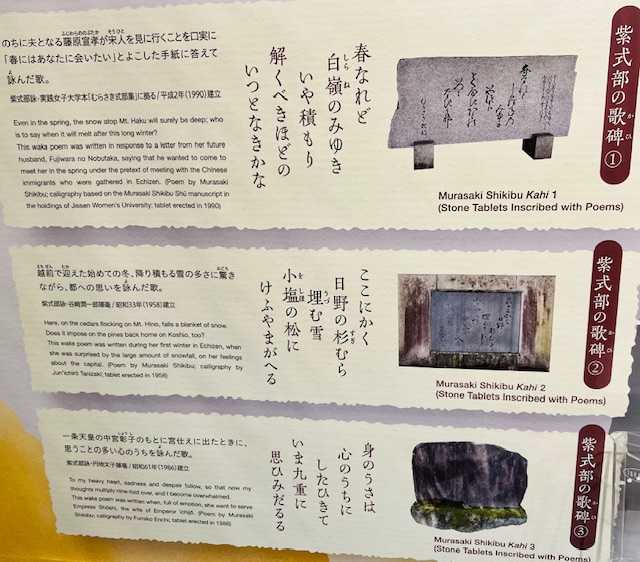 紫式部の歌碑①
かひ
Murasaki Shikibu Kahi 1
(Stone Tablets Inscribed with Poems)
春なれど
白嶺のみゆき
しらね
いや積もり
解くべきほどの
いつとなきかな
のちに夫となる藤原宣孝が宋人を見に行くことを口実に
ふじわらののぶたか
そうひと
「春にはあなたに会いたい」とよこした手紙に答えて
詠んだ歌。
よ
紫式部詠・実践女子大学本「むらさき式部集」に拠る/平成2年(1990)建立
Even in the spring, the snow atop Mt. Haku will surely be deep; who
is to say when it will melt after this long winter?
This waka poem was written in response to a letter from her future
husband, Fujiwara no Nobutaka, saying that he wanted to come to
meet her in the spring under the pretext of meeting with the Chinese
immigrants who were gathered in Echizen. (Poem by Murasaki
Shikibu; calligraphy based on the Murasaki Shikibu Shū manuscript in
the holdings of Jissen Women's University; tablet erected in 1990)
紫式部の歌碑②
かひ
Murasaki Shikibu Kahi 2
(Stone Tablets Inscribed with Poems)
ここにかく
日野の杉むら
すぎ
埋む雪
うづ
小塩の松に
をしほ
けふやまがへる
越前で迎えた始めての冬、降り積もる雪の多さに驚き
えちぜん
むか
おどろ
ながら、都への思いを詠んだ歌。
紫式部詠・谷崎潤一郎揮毫/昭和33年(1958)建立
Here, on the cedars flocking on Mt. Hino, falls a blanket of snow.
Does it impose on the pines back home on Koshio, too?
This waka poem was written during her first winter in Echizen, when
she was surprised by the large amount of snowfall, on her feelings
about the capital. (Poem by Murasaki Shikibu; calligraphy by
Jun'ichirō Tanizaki; tablet erected in 1958)
紫式部の歌碑③
かひ
Murasaki Shikibu Kahi 3
(Stone Tablets Inscribed with Poems)
身のうさは
心のうちに
したひきて
いま九重に
思ひみだるる
一条天皇の中宮彰子のもとに宮仕えに出たときに、
しょうし
思うことの多い心のうちを詠んだ歌。
紫式部詠・円地文子揮毫/昭和61年(1986)建立
To my heavy heart, sadness and despair follow, so that now my
thoughts multiply nine-fold over, and I become overwhelmed.
This waka poem was written when, full of emotion, she went to serve
Empress Shōshi, the wife of Emperor Ichijō. (Poem by Murasaki
Shikibu; calligraphy by Fumiko Enchi; tablet erected in 1986)